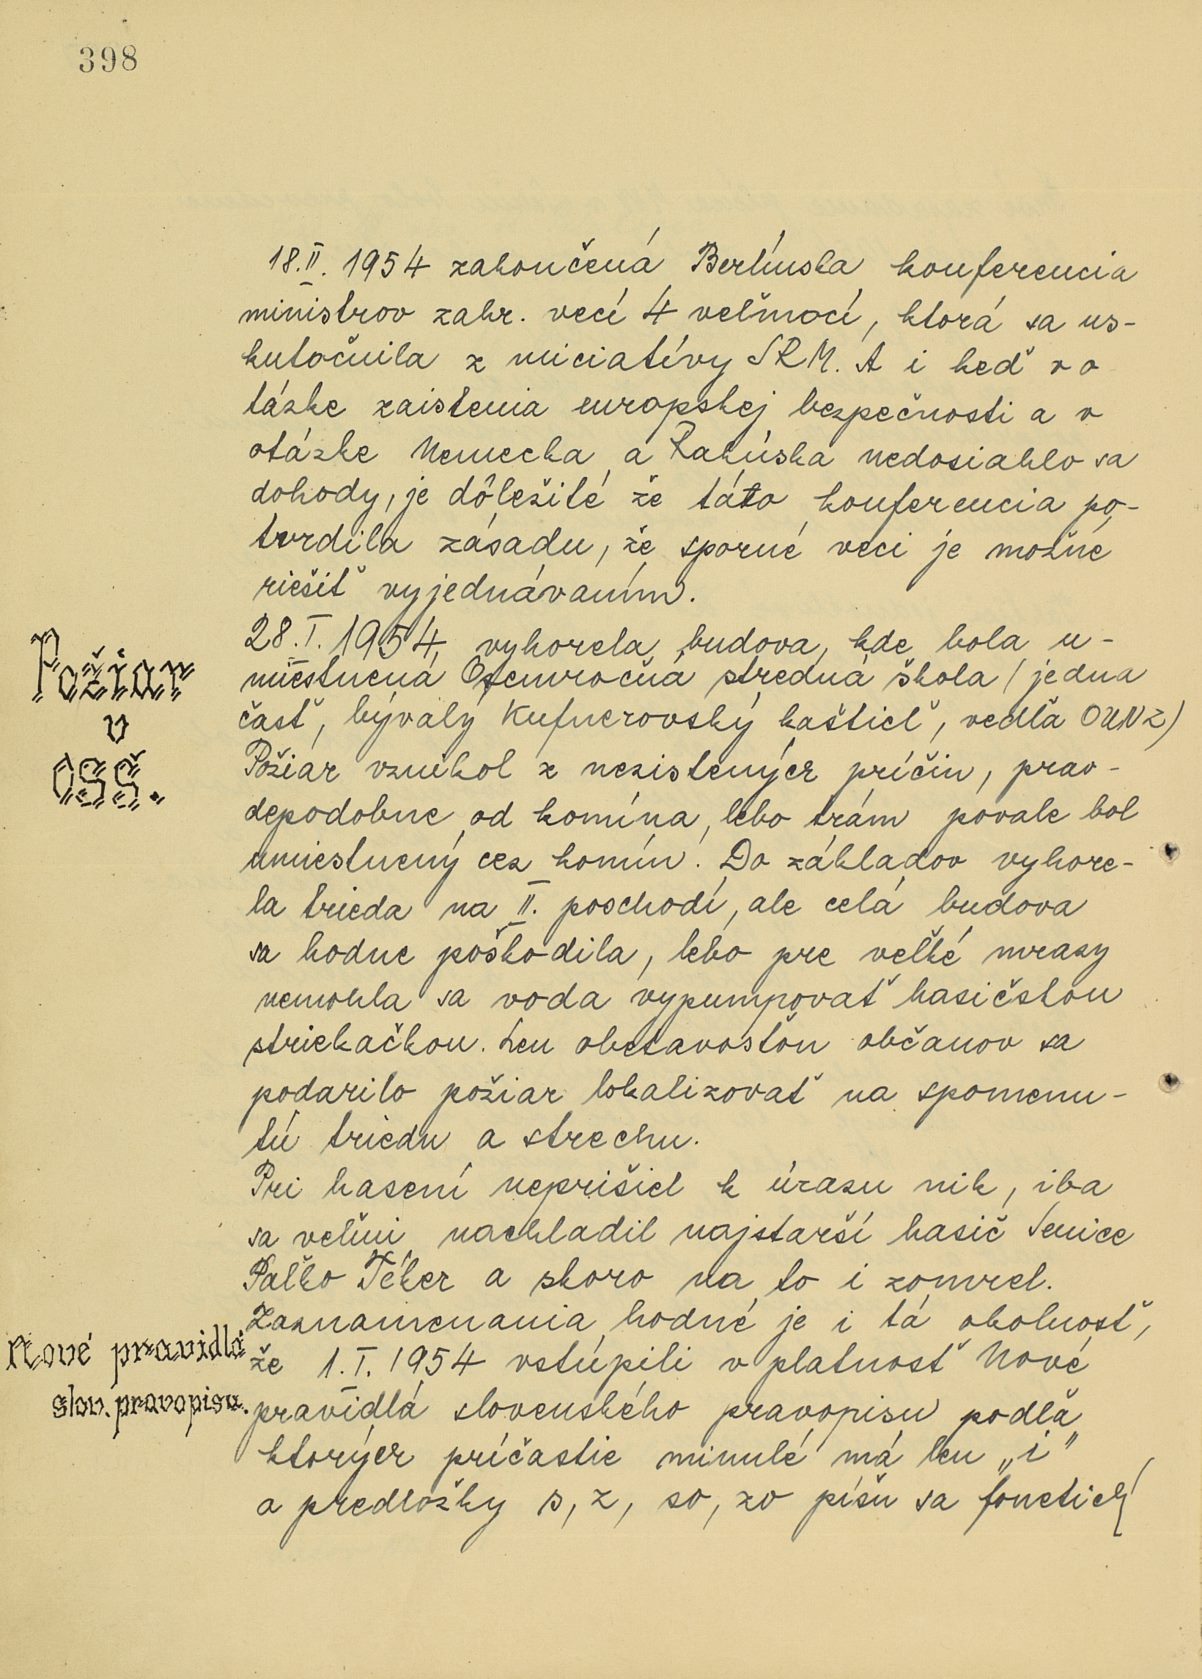 398
18.II. 1954 zakončená Berlínska konferencia
ministrov zahr. vecí 4 veľmocí, ktorá sa us-
kutočnila z iniciatívy SRM. A i keď v o
tázke zaistenia europskej bezpečnosti a v
otázke Nemecka a Rakúska nedosiahlo sa
dohody, je dôležité že táto konferencia po-
tvrdila zásadu, že sporné veci je možné
riešiť vyjednávaním.
Požiar
v
OSŠ.
28.I.1954 vyhorela budova, kde bola u-
miestnená Osemročná stredná škola / jedna
časť, bývalý Kufnerovský kaštieľ, vedľa OUNZ)
Požiar vznikol z nezistených príčin, prav-
depodobne od komína, lebo trám povale bol
umiestnený cez komín. Do základov vyhore-
la trieda na II. poschodí, ale celá budova
sa hodne poškodila, lebo pre veľké mrazy
nemohla sa voda vypumpovať hasičskou
striekačkou. Len obetavosťou občanov sa
podarilo požiar lokalizovať na spomenu-
tú triedu a strechu.
Pri hasení neprišiel k úrazu nik, iba
sa veľmi nachladil najstarší hasič Senice
Paľko Téker a skoro na to i zomrel.
Nové pravidlá
slov. pravopisu.
Zaznamenania hodné je i tá okolnosť,
že 1.I.1954 vstúpili v platnosť Nové
pravidlá slovenského pravopisu podľa
ktorých príčastie minulé má len „i"
a predložky s, z, so, zo píšu sa foneticky